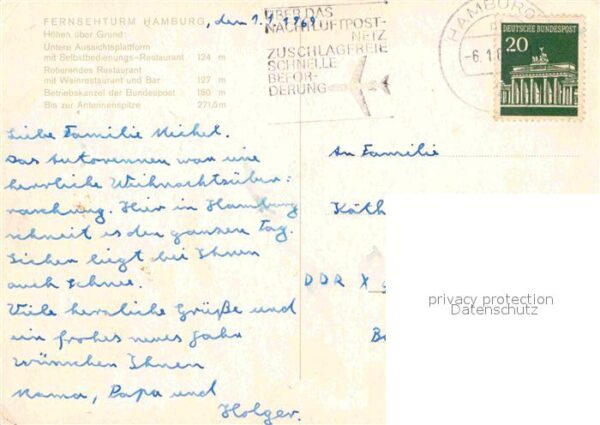 FERNSEHTURM HAMBURG, den 1.1.1969
Höhen über Grund:
Untere Aussichtsplattform
mit Selbstbedienungs-Restaurant 124 m
Rotierendes Restaurant
mit Weinrestaurant und Bar 127 m
Betriebskanzel der Bundespost 150 m
Bis zur Antennenspitze 271,5 m
ÜBER DAS
NACHTLUFTPOST-
NETZ
ZUSCHLAGFREIE
SCHNELLE
BEFÖR-
DERUNG
HAMBURG
-6.1.6
DEUTSCHE BUNDESPOST
20
Liebe Familie Michel.
Das Autorennen war eine
herrliche Weihnachtsüber-
raschung. Hier in Hamburg
schneit es den ganzen Tag.
Sicher liegt bei Ihnen
auch Schnee.
Viele herzliche Grüße und
ein frohes neues Jahr
wünschen Ihnen
Mama, Papa und
Holger.
An Familie
Käth
DDR X
B
privacy protection
Datenschutz